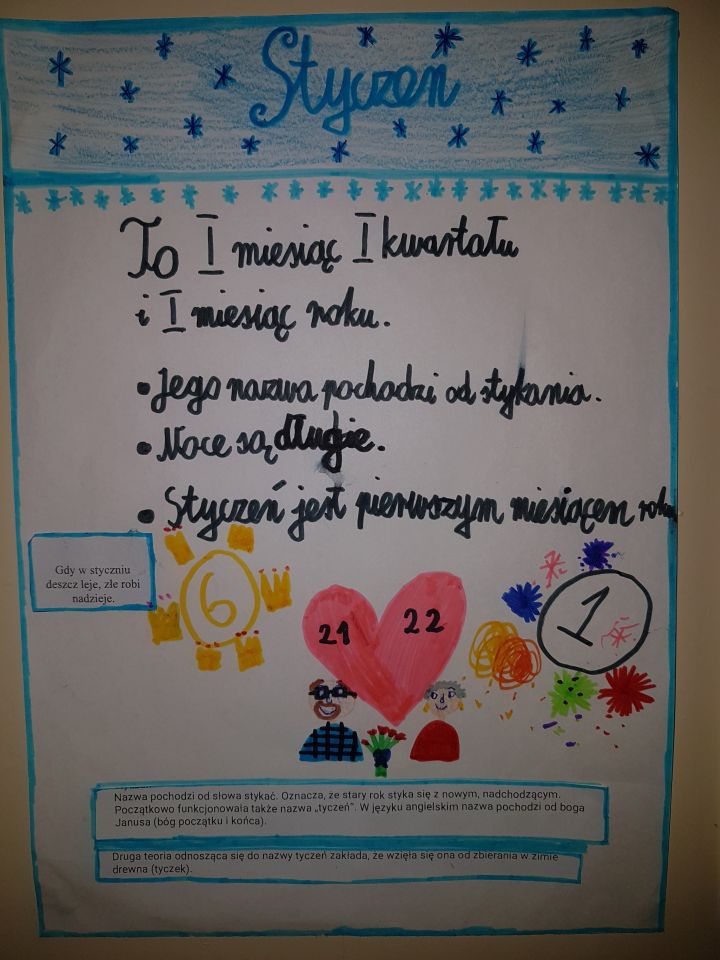 Styczeń
To I miesiąc I kwartału
i I miesiąc roku.
• Jego nazwa pochodzi od stykania.
• Noce są długie.
• Styczeń jest pierwszym miesiącem roku
Gdy w styczniu
deszcz leje, złe robi
nadzieje.
6
21 22
1
Nazwa pochodzi od słowa stykać. Oznacza, że stary rok styka się z nowym, nadchodzącym.
Początkowo funkcjonowała także nazwa „tyczeń". W języku angielskim nazwa pochodzi od boga
Janusa (bóg początku i końca).
Druga teoria odnosząca się do nazwy tyczeń zakłada, że wzięła się ona od zbierania w zimie
drewna (tyczek).